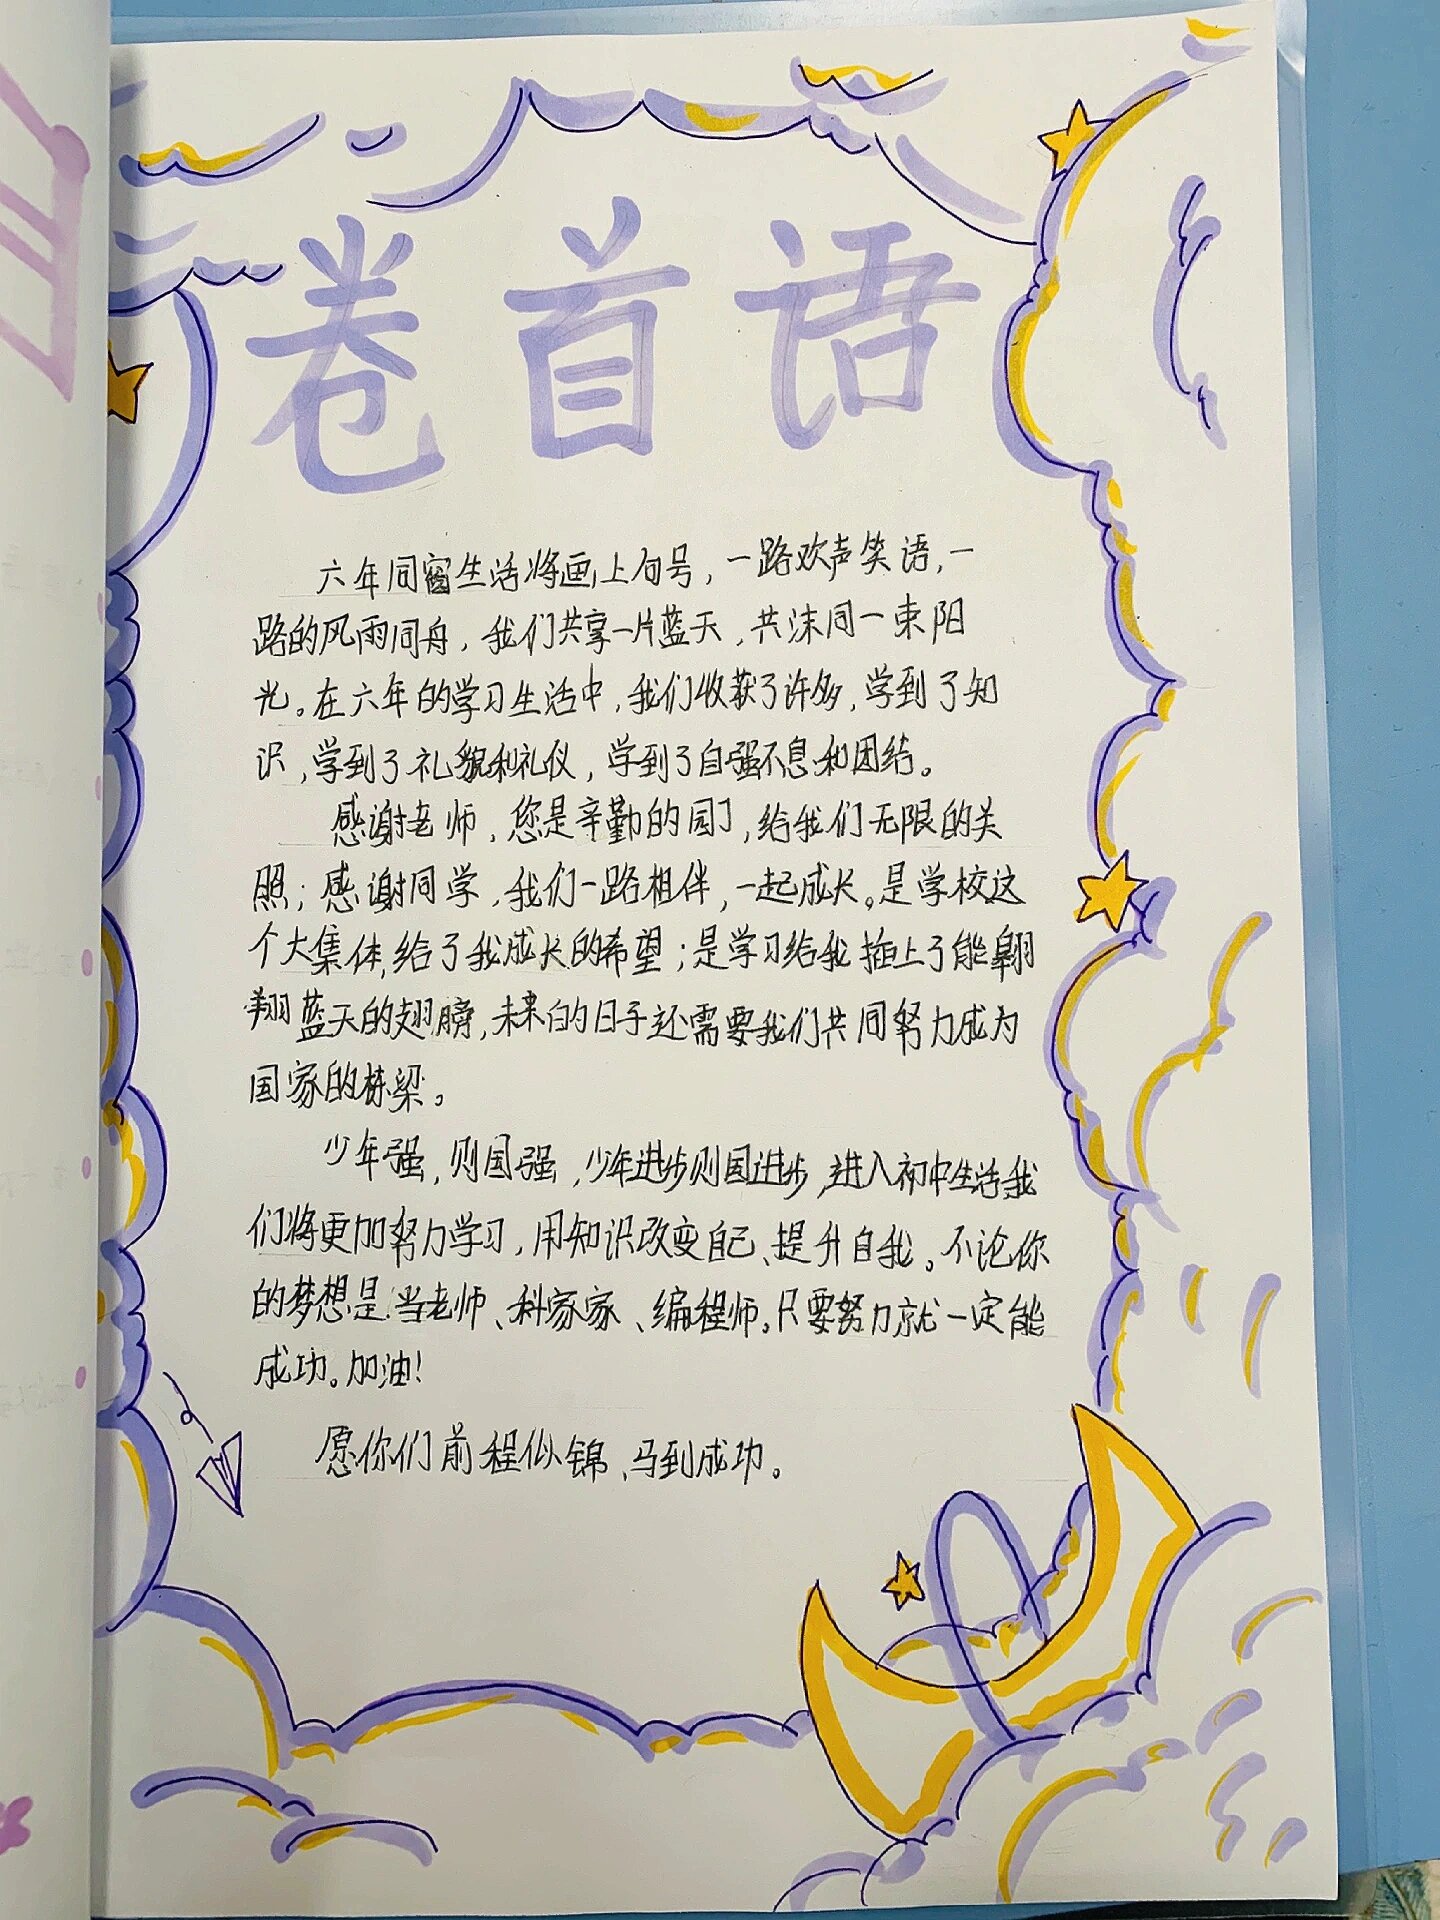 卷首语
六年同窗生活将画上句号，一路欢声笑语，一
路的风雨同舟，我们共享一片蓝天，共沫同一束阳
光。在六年的学习生活中，我们收获了许多，学到了知
识，学到了礼貌和礼仪，学到了自强不息和团结。
感谢老师，您是辛勤的园丁，给我们无限的关
照；感谢同学，我们一路相伴，一起成长。是学校这
个大集体，给了我成长的希望；是学习给我插上了能翱
翔蓝天的翅膀，未来的日子还需要我们共同努力成为
国家的栋梁。
少年强，则国强，少年进步则国进步，进入初中生活，我
们将更加努力学习，用知识改变自己、提升自我。不论你
的梦想是当老师、科家家、编程师。只要努力就一定能
成功。加油！
愿你们前程似锦、马到成功。